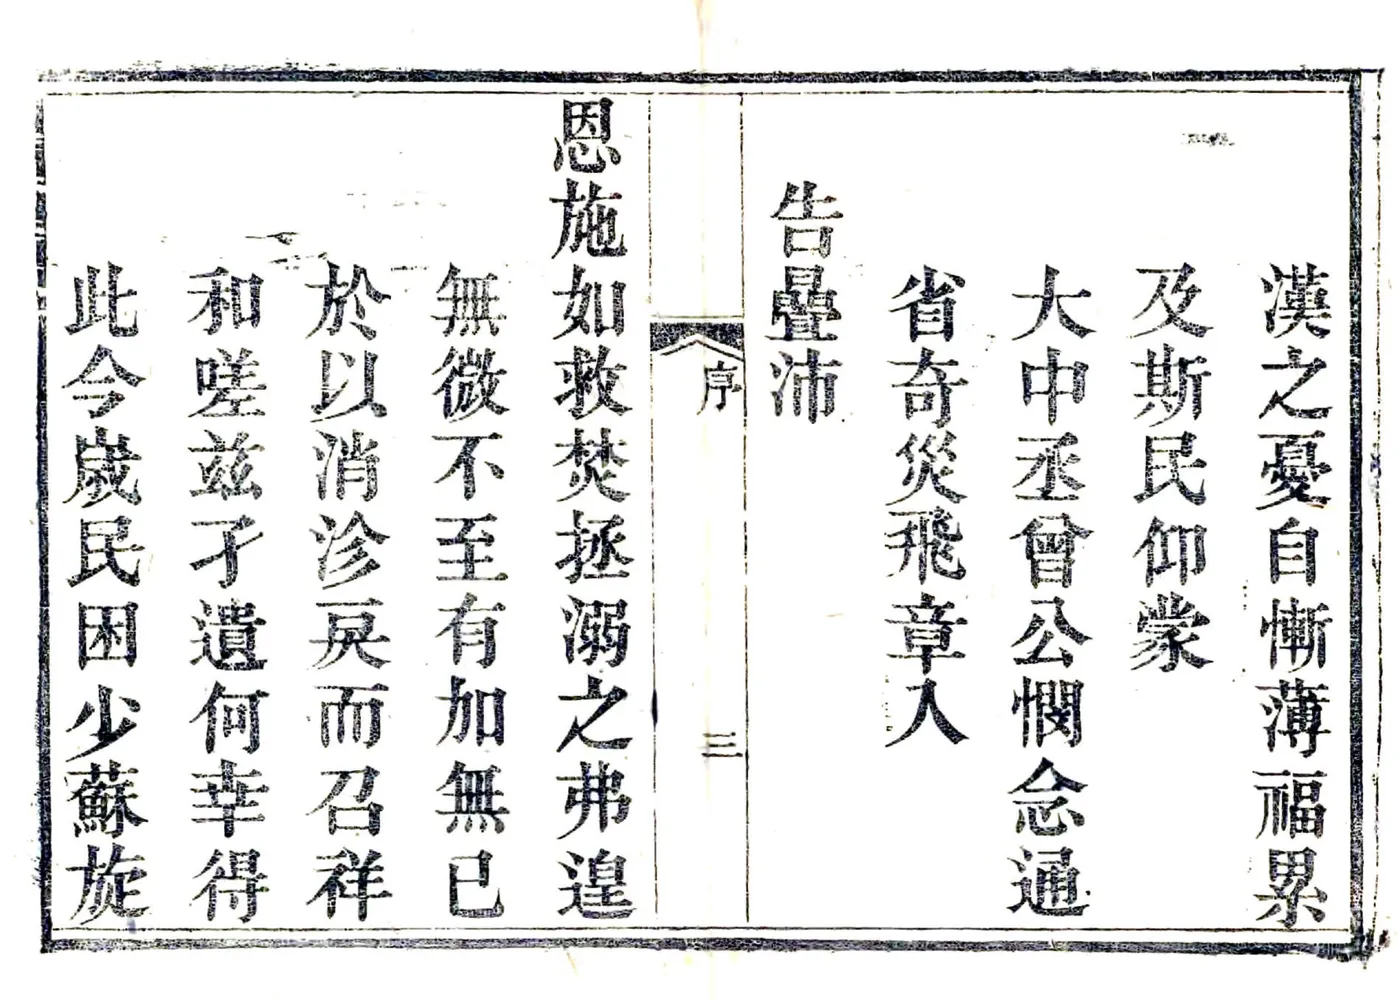 漢之憂自慚薄福累
及斯民仰蒙
大中丞曾公憫念通
省奇災飛章入
告疊沛
序
三
恩施如救焚拯溺之弗遑
無微不至有加無已
於以消沴戾而召祥
和嗟茲孑遺何幸得
此今歲民困少蘇旋